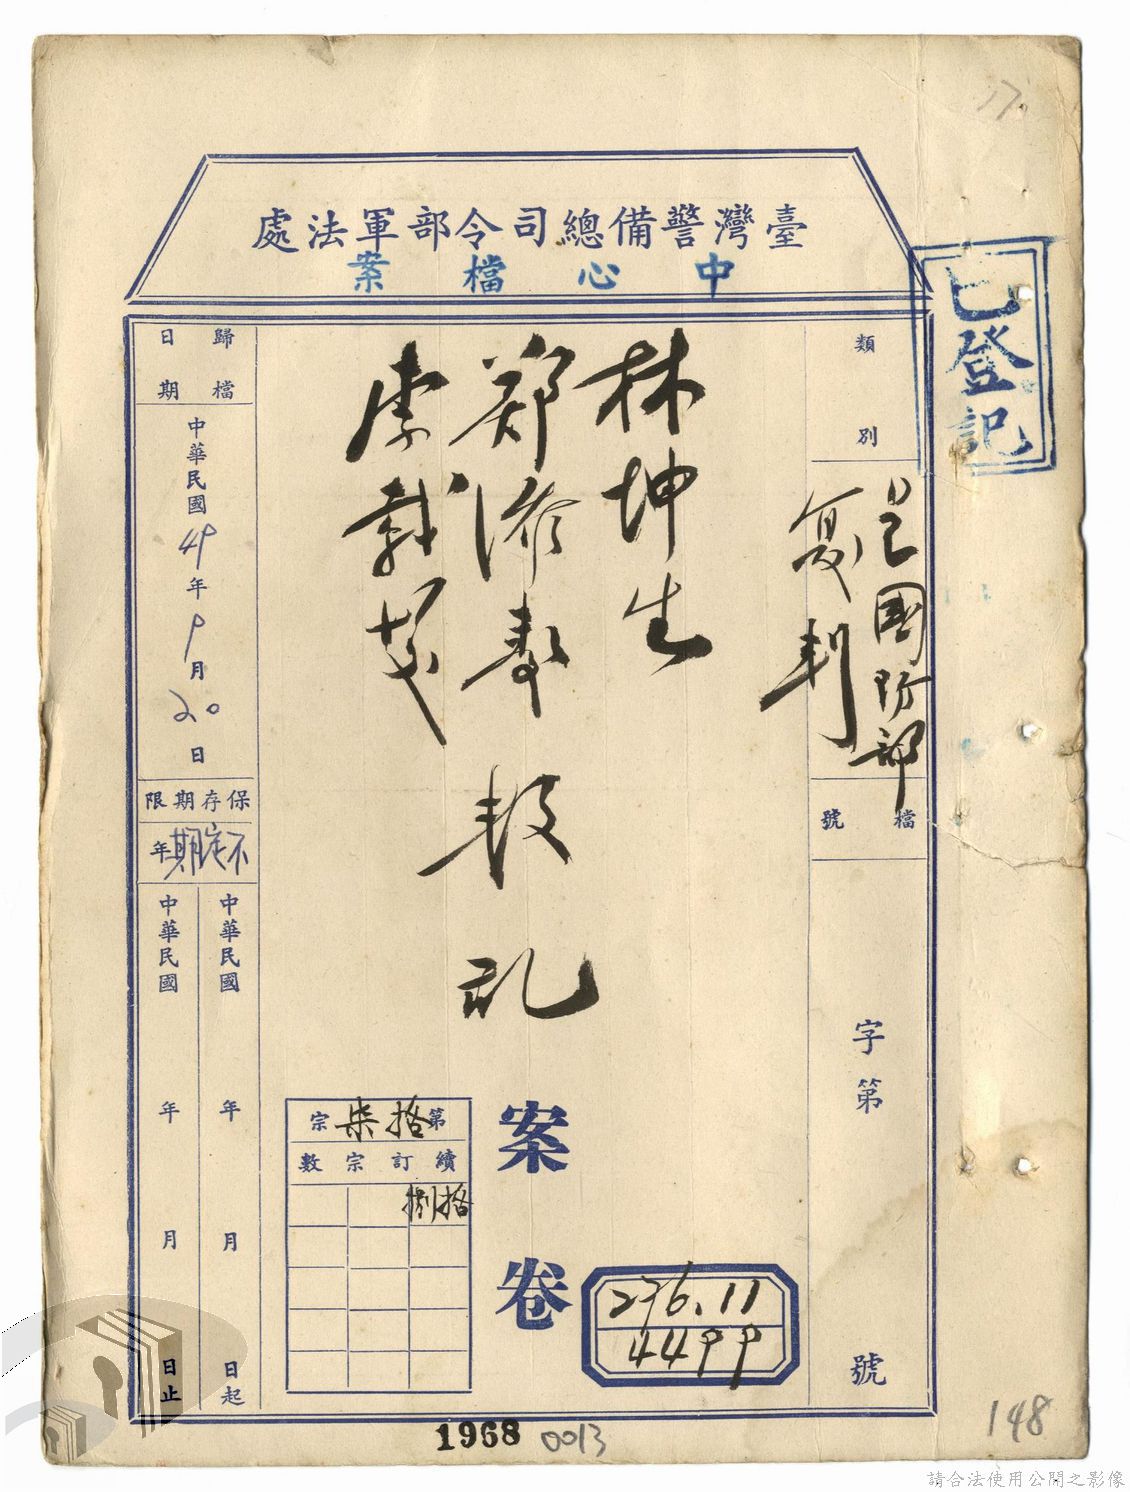 17.
臺灣警備總司令部軍法處
中心檔案
已登記
類別
呈國防部
复判
檔號
字第 號
林坤生
郑添寿
李
叛乱
案卷
第拾柒宗
續訂宗數
拾捌
276.11
4499
歸檔日期
中華民國49年9月20日
保存期限
不定期年
中華民國 年 月 日起
中華民國 年 月 日止
1968 0013
148
請合法使用公開之影像